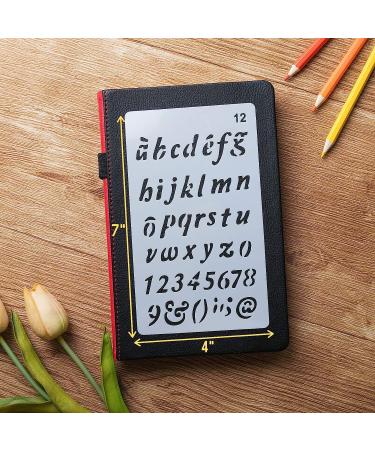 12
àbcdéfğ
hijklmn
õpqrstu
vwxyzo
12345678
9&()";¡@
7"
4"